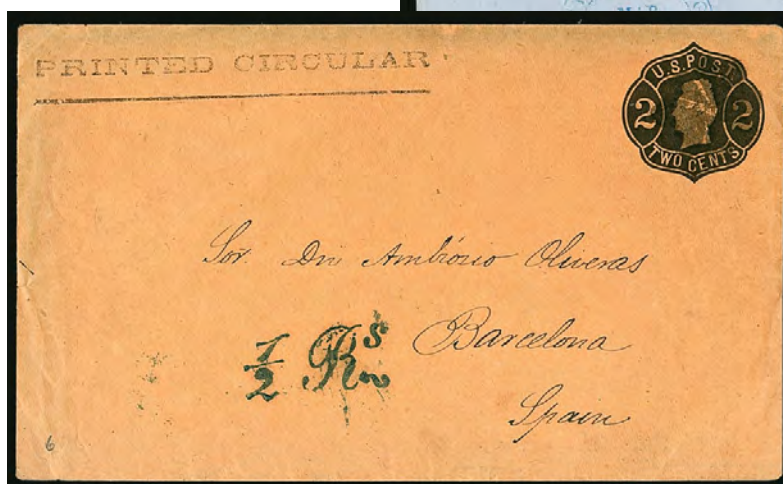 PRINTED CIRCULAR
U.S. POST.
2 2
TWO CENTS
Sor. Dn Ambrosio Oliveras
Barcelona
Spain
1/2 Rs
6